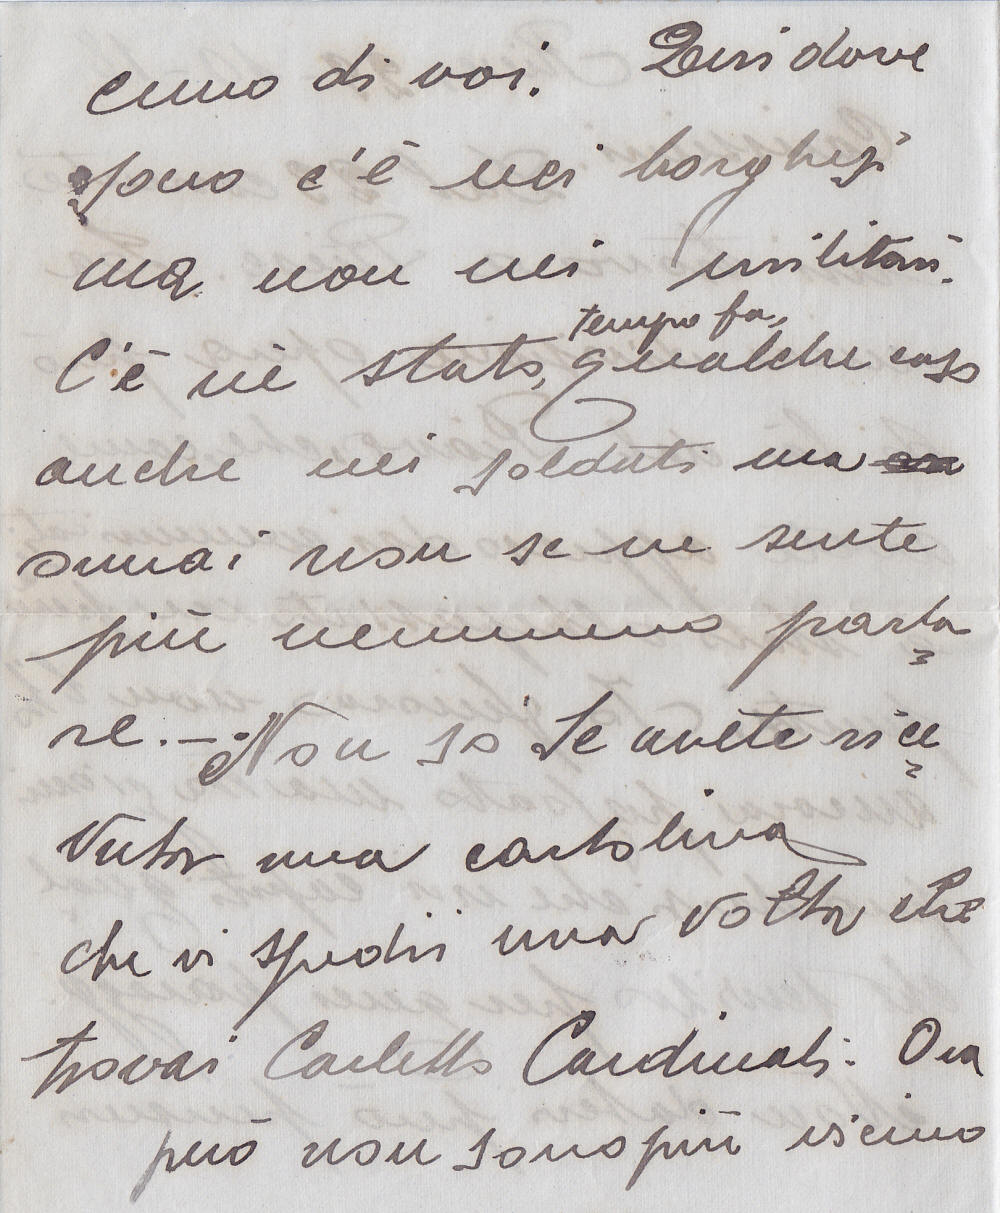 cuno di voi. Quì dove
sono c'è nei borghesi
ma non nei militari.
C'è n'è stato, tempo fa, qualche caso
anche nei soldati ma
ormai non se ne sente
più nemmeno parla=
re. – Non so se avete rice=
vuto una cartolina
che vi spedii una volta che
trovai Carletto Cardinali. Ora
però non sono più vicino